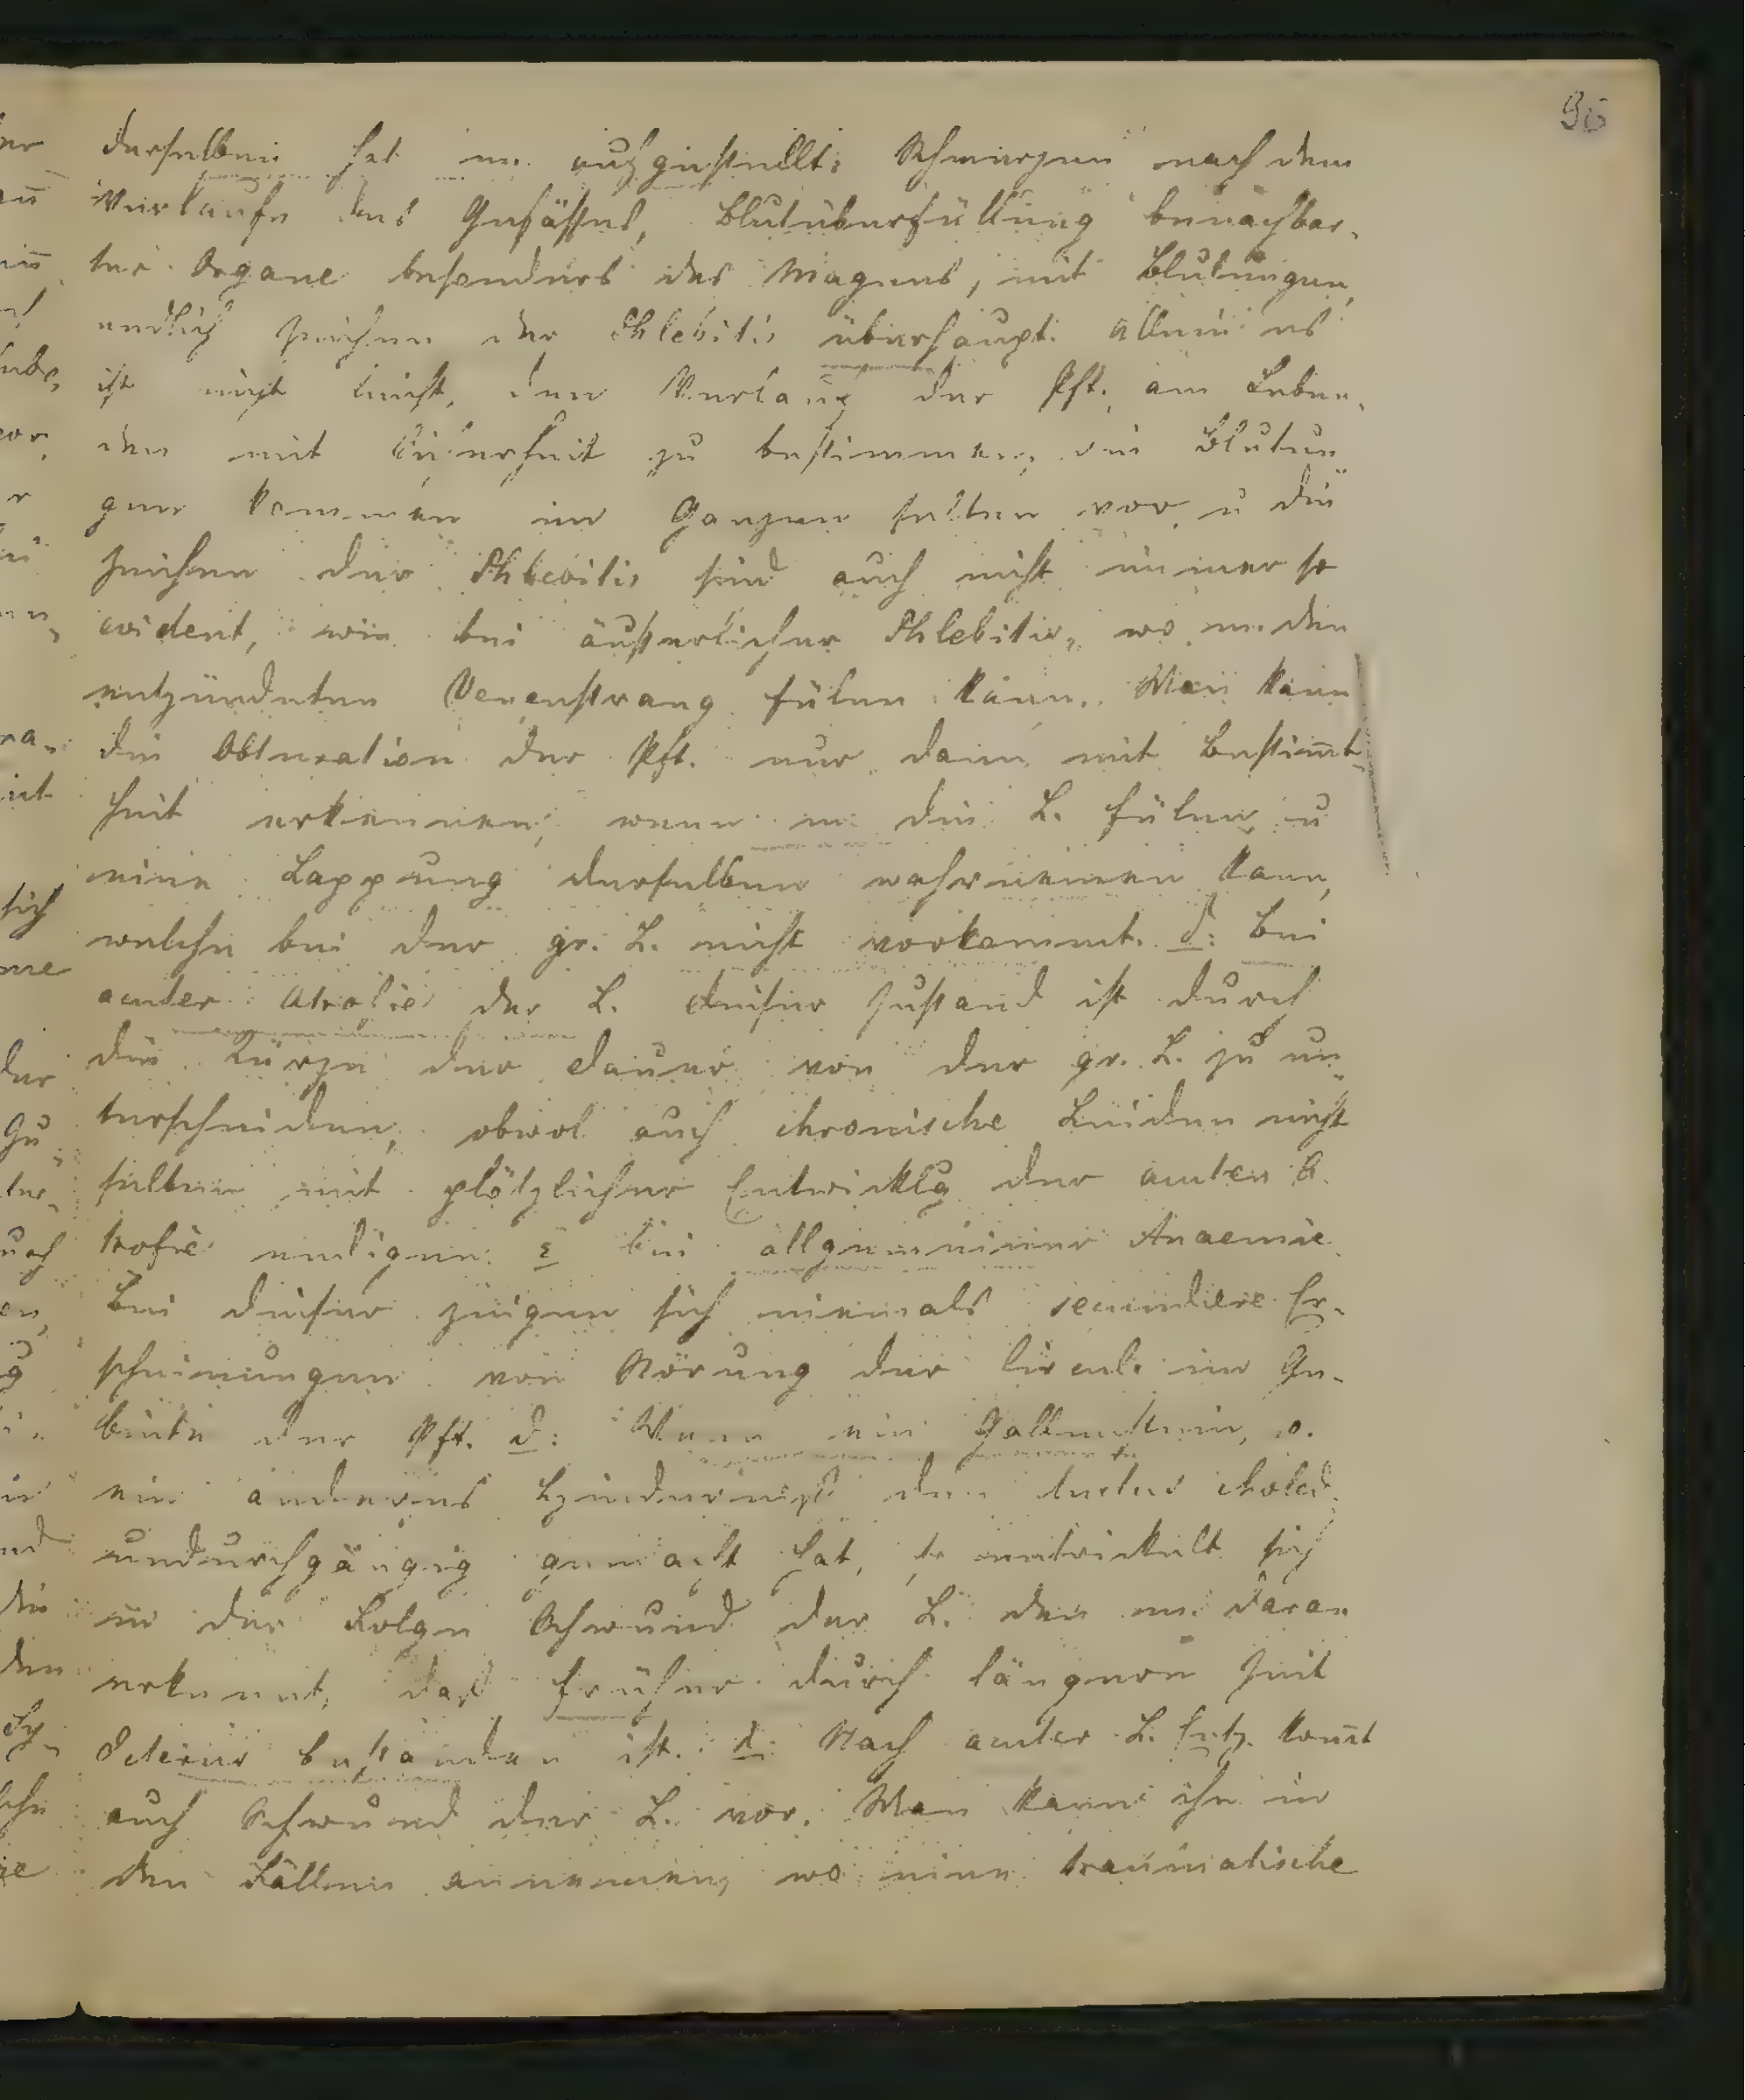 96
derselben hat m. aufgestellt: Schmerzen nach dem
Verlaufe des Gefässes, Blutüberfüllung benachbar-
ter Organe besonders des Magens, mit Blutungen,
endlich Zeichen der Phlebitis überhaupt. Allein es
ist nicht leicht, den Verlauf der Pft. am Leben-
den mit Sicherheit zu bestimmen, die Blutun-
gen kommen im Ganzen selten vor, u die
Zeichen der Phlebitis sind auch nicht immer so
evident, wie bei äusserlicher Phlebitis, wo m. den
entzündeten Venenstrang fülen kann. Man kann
die Obturation der Pft. nur dann mit Bestim̄t-
heit erkennen, wenn m. die L. fülen u
eine Lappung derselben wahrnemen kann,
welche bei der gr. L. nicht vorkommt. d: bei
acuter Atrofie der L. dieser Zustand ist durch
die Kürze der Dauer von der gr. L. zu un-
terscheiden, obwol auch chronische Leiden nicht
selten mit plötzlicher Entwicklg der acuten A-
trofie endigen. ε bei allgemeiner Anaemie.
Bei dieser zeigen sich niemals secundäre Er-
scheinungen von Störung der Circul. im Ge-
biete der Pft. Wenn ein Gallenstein, o.
ein anderes Hinderniss den ductus choled.
undurchgängig gemacht hat, so entwickelt sich
in der Folge Schwund der L. den m. daran
erkennt, das früher durch längere Zeit
Icterus bestanden ist. Nach acuter L. Entz. kom̄t
auch Schwund der L. vor. Man kann ihn in
den Fällen annemen, wo eine traumatische